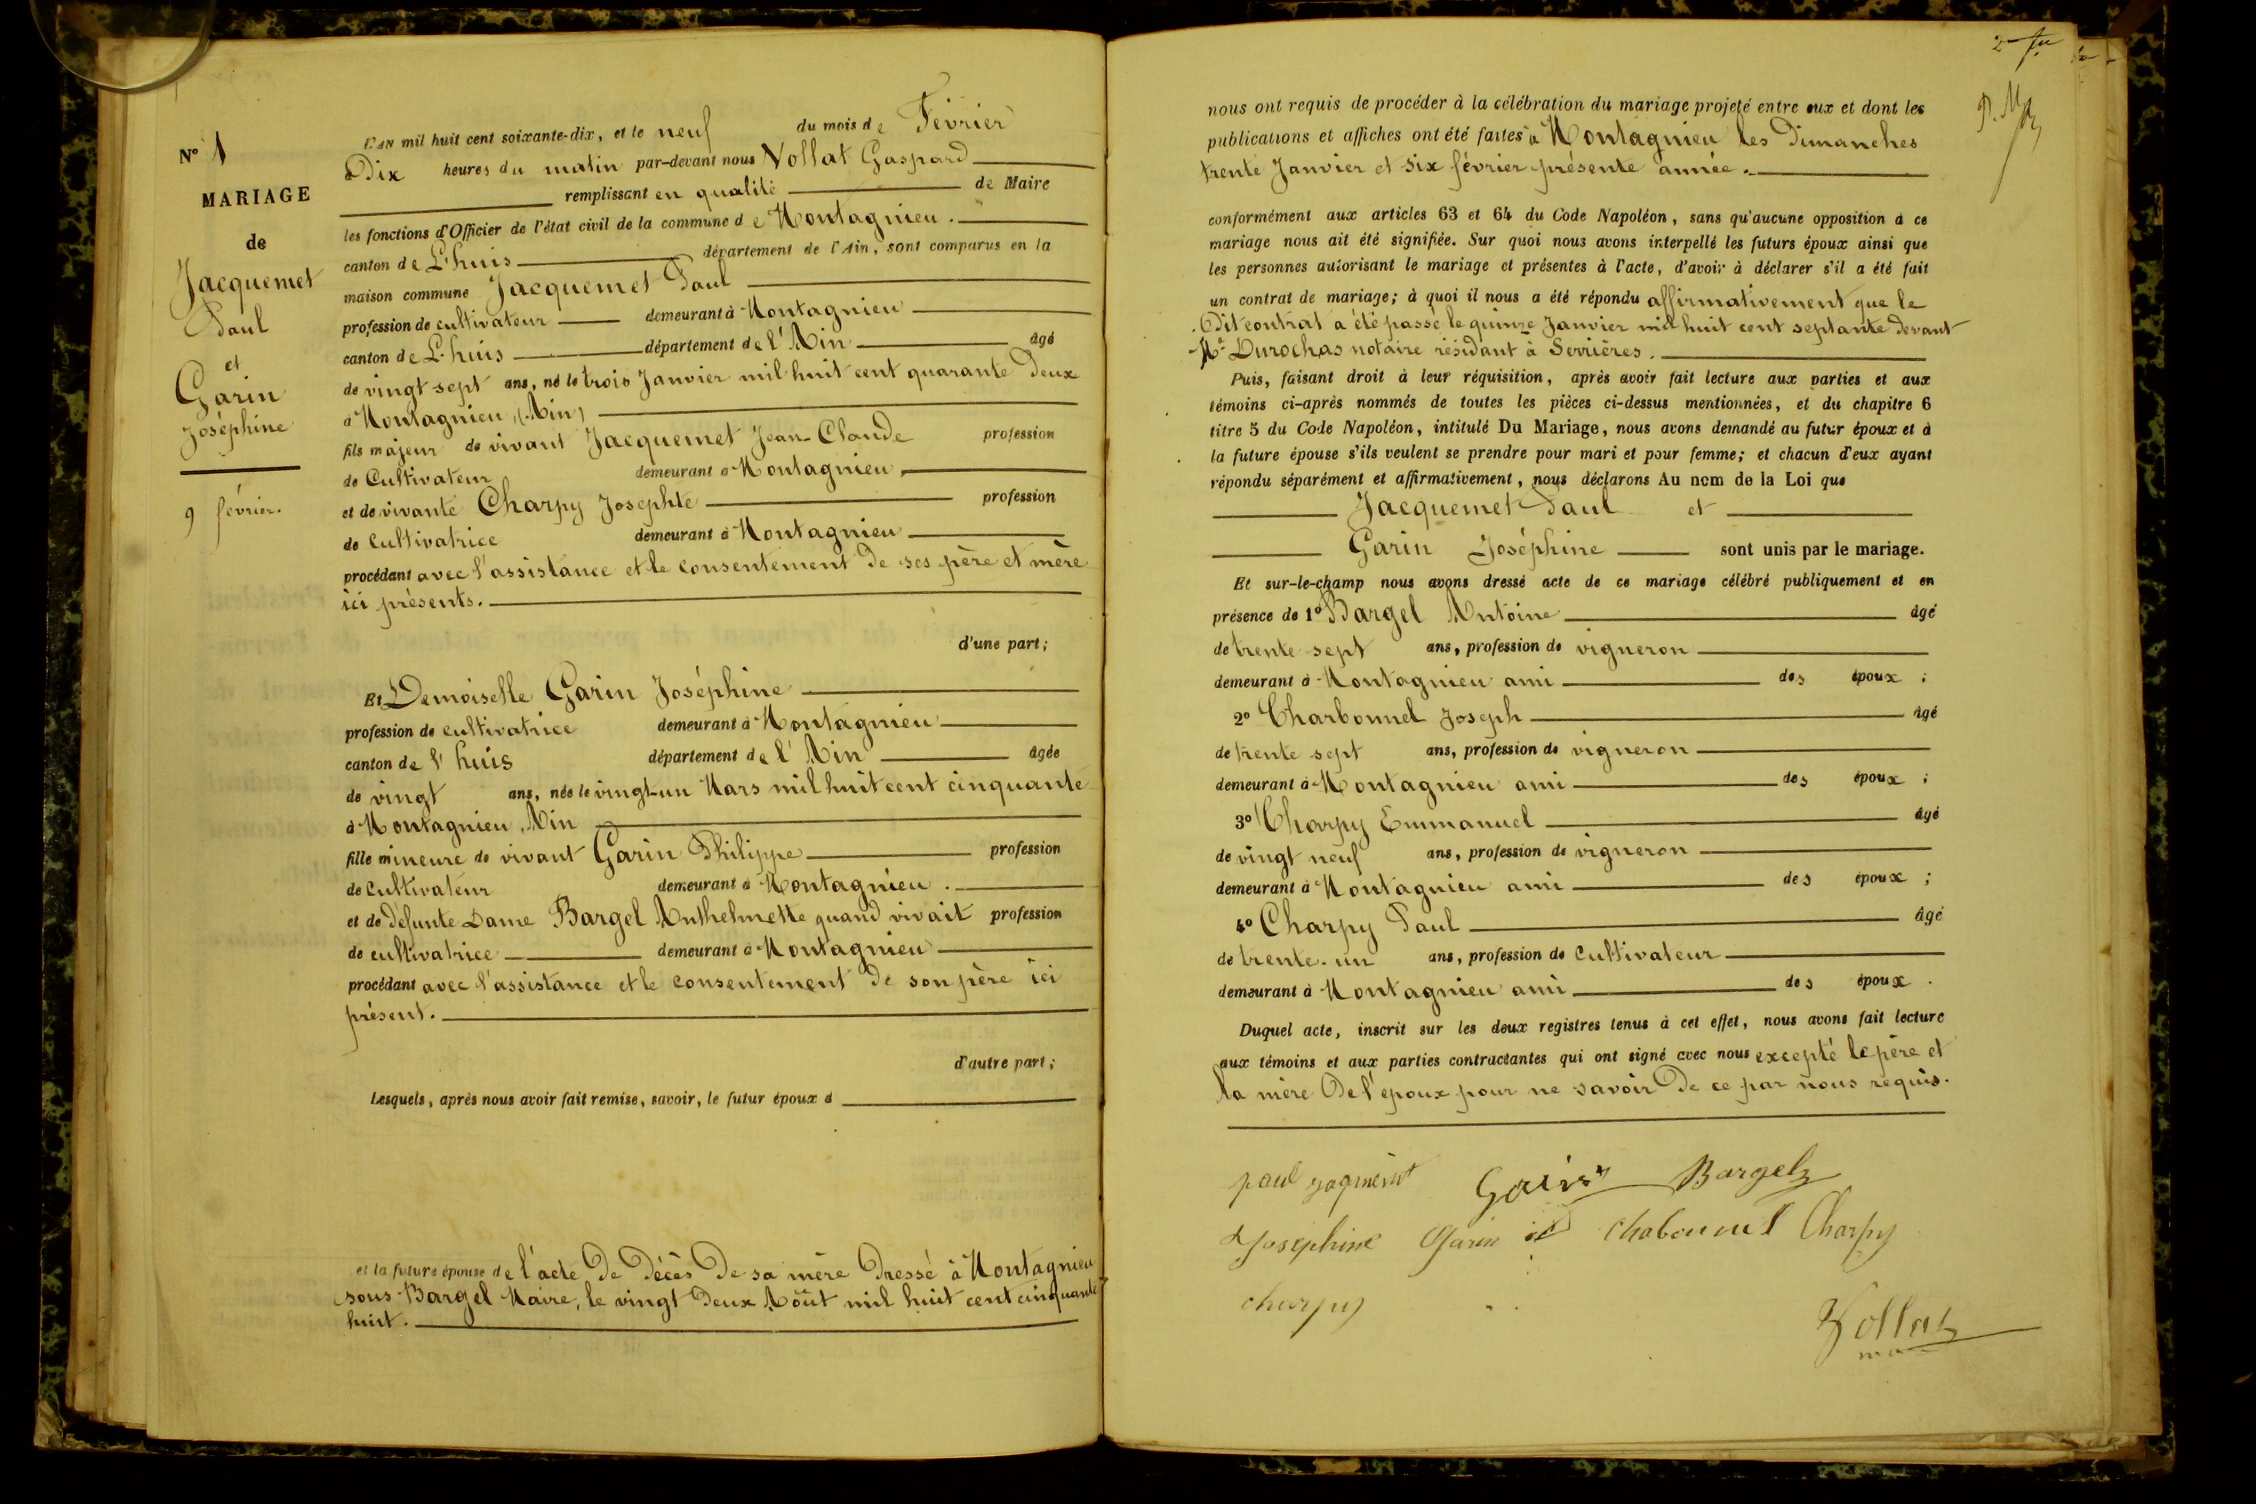 N° 1
MARIAGE
de
Jacquemet
Paul
et
Garin
Joséphine
9 février.
L'AN mil huit cent soixante-dix, et le neuf du mois de Février
à Dix heures du matin par-devant nous Vollat Gaspard
remplissant en qualité de Maire
les fonctions d'Officier de l'état civil de la commune de Montagnieu.
canton de L'huis département de l'Ain, sont comparus en la
maison commune Jacquemet Paul
profession de cultivateur demeurant à Montagnieu
canton de L'huis département de l'Ain âgé
de vingt sept ans, né le trois Janvier mil huit cent quarante Deux
à Montagnieu, (Ain)
fils majeur de vivant Jacquemet Jean-Claude profession
de Cultivateur demeurant à Montagnieu
et de vivante Charpy Josephte profession
de cultivatrice demeurant à Montagnieu
procédant avec l'assistance et le consentement De ses père et mère
ici présents.
d'une part;
Et Demoiselle Garin Joséphine
profession de cultivatrice demeurant à Montagnieu
canton de l'huis département de l'Ain âgée
de vingt ans, née le vingt-un Mars mil huit cent cinquante
à Montagnieu, Ain
fille mineure de vivant Garin Philippe profession
de Cultivateur demeurant à Montagnieu.
et de défunte Dame Bargel Anthelmette quand vivait profession
de cultivatrice demeurant à Montagnieu
procédant avec l'assistance et le consentement De son père ici
présent.
d'autre part;
Lesquels, après nous avoir fait remise, savoir, le futur époux d
et la future épouse de l'acte De Décès De sa mère Dressé à Montagnieu
sous Bargel Maire, le vingt Deux Août mil huit cent cinquante
huit.
nous ont requis de procéder à la célébration du mariage projeté entre eux et dont les
publications et affiches ont été faites à Montagnieu les Dimanches
trente Janvier et six février présente année.
conformément aux articles 63 et 64 du Code Napoléon, sans qu'aucune opposition à ce
mariage nous ait été signifiée. Sur quoi nous avons interpellé les futurs époux ainsi que
les personnes autorisant le mariage et présentes à l'acte, d'avoir à déclarer s'il a été fait
un contrat de mariage; à quoi il nous a été répondu affirmativement que le
Dit contrat a été passé le quinze Janvier mil huit cent septante Devant
Me Durochas notaire résidant à Serrières.
Puis, faisant droit à leur réquisition, après avoir fait lecture aux parties et aux
témoins ci-après nommés de toutes les pièces ci-dessus mentionnées, et du chapitre 6
titre 5 du Code Napoléon, intitulé Du Mariage, nous avons demandé au futur époux et à
la future épouse s'ils veulent se prendre pour mari et pour femme; et chacun d'eux ayant
répondu séparément et affirmativement, nous déclarons Au nom de la Loi que
Jacquemet Paul et
Garin Joséphine sont unis par le mariage.
Et sur-le-champ nous avons dressé acte de ce mariage célébré publiquement et en
présence de 1° Bargel Antoine âgé
de trente sept ans, profession de vigneron
demeurant à Montagnieu ami des époux;
2° Charbonnel Joseph âgé
de trente sept ans, profession de vigneron
demeurant à Montagnieu ami des époux;
3° Charpy Emmanuel âgé
de vingt neuf ans, profession de vigneron
demeurant à Montagnieu ami des époux;
4° Charpy Paul âgé
de trente-un ans, profession de Cultivateur
demeurant à Montagnieu ami des époux.
Duquel acte, inscrit sur les deux registres tenus à cet effet, nous avons fait lecture
aux témoins et aux parties contractantes qui ont signé avec nous excepté le père et
la mère De l'époux pour ne savoir De ce par nous requis.
paul Garin Bargel
Josephine Garin Chabonnel Charpy
charpy
Vollat